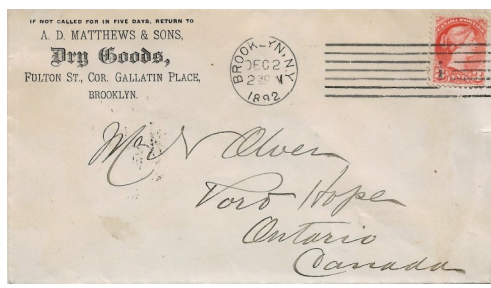 IF NOT CALLED FOR IN FIVE DAYS, RETURN TO
A. D. MATTHEWS & SONS,
Dry Goods,
FULTON ST., COR. GALLATIN PLACE,
BROOKLYN.
BROOKLYN, N.Y.
DEC 2
1892
Port Hope
Ontario
Canada